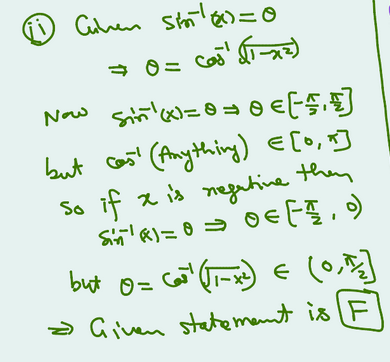 (ii) Given sin⁻¹(x) = θ
⇒ θ = cos⁻¹(√(1-x²))
Now sin⁻¹(x) = θ ⇒ θ ∈ [-π/2, π/2]
but cos⁻¹(Anything) ∈ [0, π]
so if x is negative then
sin⁻¹(x) = θ ⇒ θ ∈ [-π/2, 0)
but θ = cos⁻¹(√(1-x²)) ∈ (0, π/2]
⇒ Given statement is F